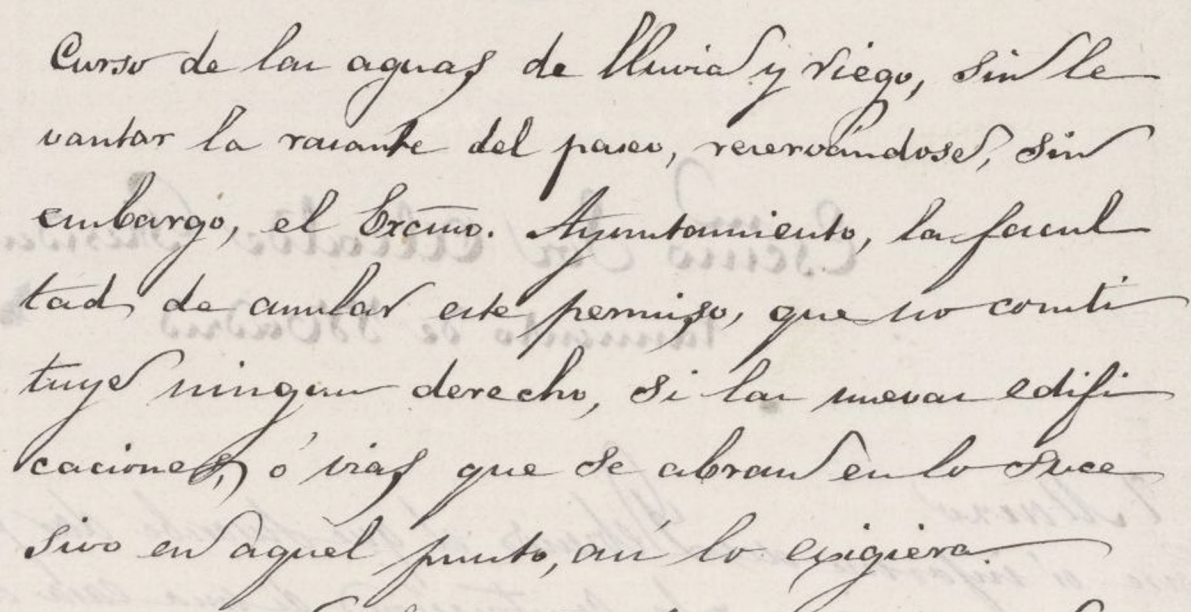 Curso de las aguas de lluvia y riego, sin le
vantar la rasante del paseo, reservándose, sin
embargo, el Excmo. Ayuntamiento, la facul
tad de anular este permiso, que no consti
tuye ningun derecho, si las nuevas edifi
caciones, ó vias que se abran en lo suce
sivo en aquel punto, así lo exigiera